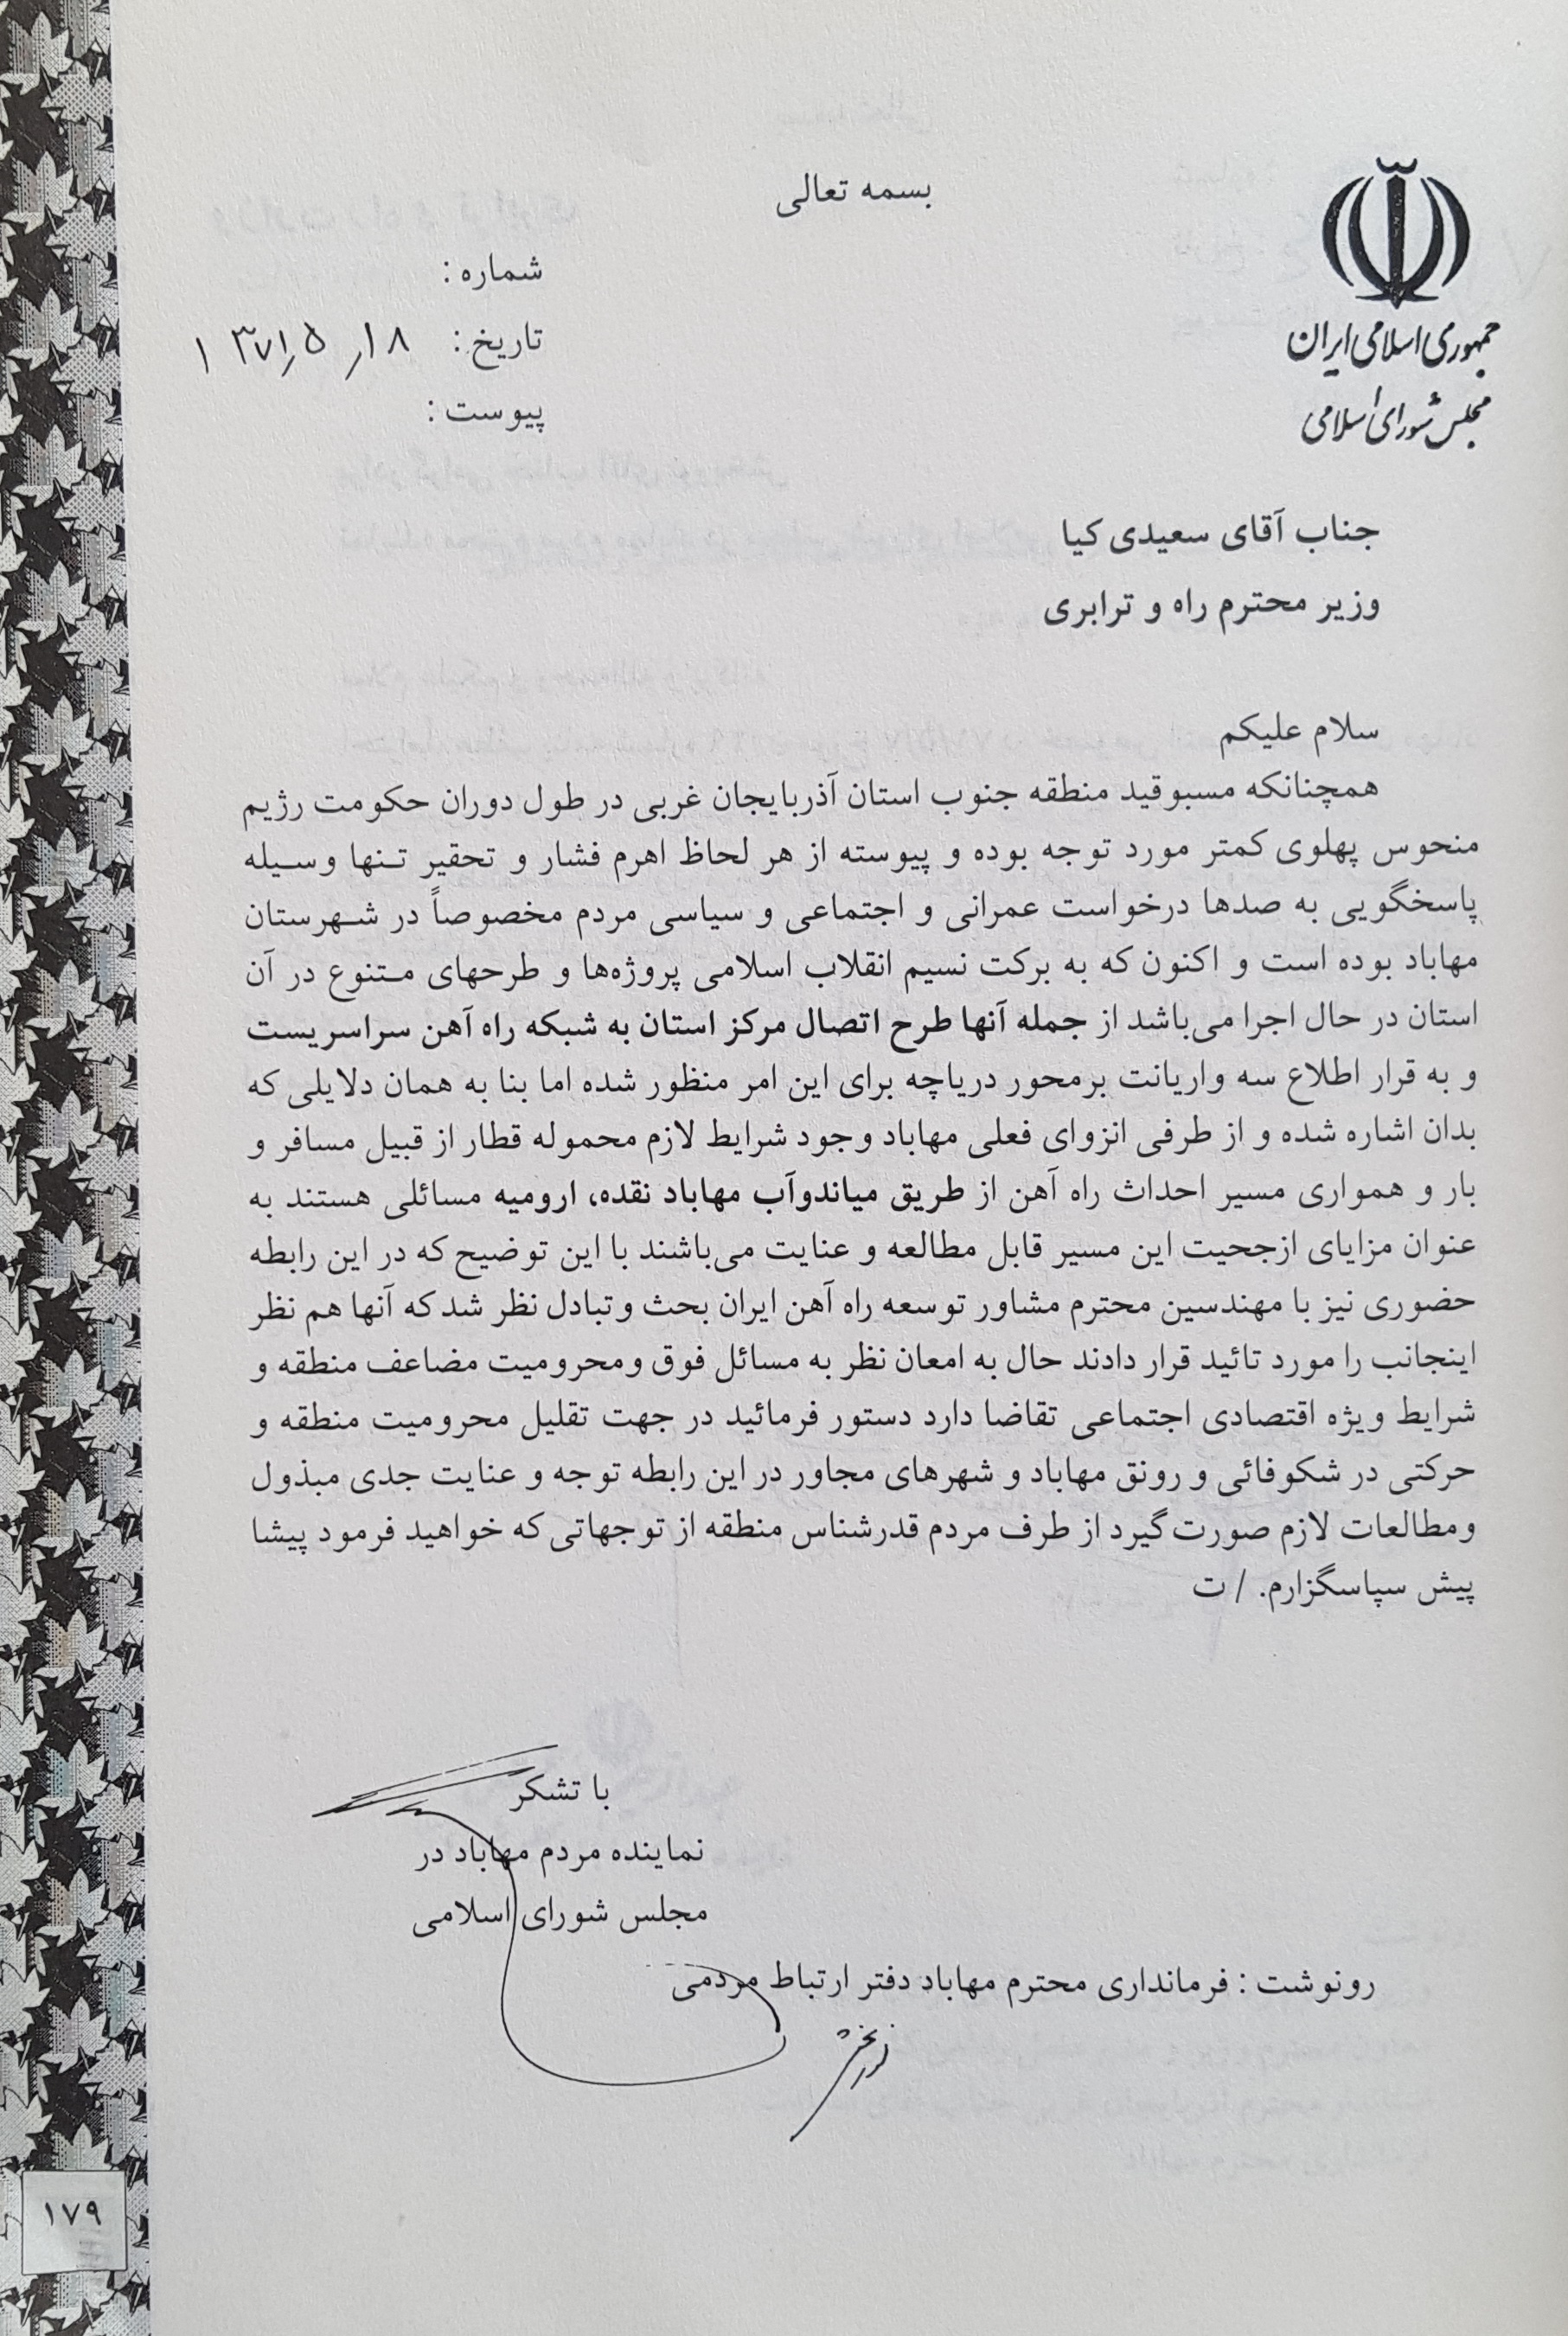 بسمه تعالی
جمهوری اسلامی ایران
مجلس شورای اسلامی
شماره :
تاریخ: ۱۳۷۱٫۵٫۱۸
پیوست :
جناب آقای سعیدی کیا
وزیر محترم راه و ترابری
سلام علیکم
همچنانکه مسبوقید منطقه جنوب استان آذربایجان غربی در طول دوران حکومت رژیم
منحوس پهلوی کمتر مورد توجه بوده و پیوسته از هر لحاظ اهرم فشار و تحقیر تـنها وسـیله
پاسخگویی به صدها درخواست عمرانی و اجتماعی و سیاسی مردم مخصوصاً در شـهرستان
مهاباد بوده است و اکنون که به برکت نسیم انقلاب اسلامی پروژه‌ها و طرحهای مـتنوع در آن
استان در حال اجرا می‌باشد از جمله آنها طرح اتصال مرکز استان به شبکه راه آهن سراسریست
و به قرار اطلاع سه واریانت برمحور دریاچه برای این امر منظور شده اما بنا به همان دلایلی که
بدان اشاره شده و از طرفی انزوای فعلی مهاباد وجود شرایط لازم محموله قطار از قبیل مسافر و
بار و همواری مسیر احداث راه آهن از طریق میاندوآب مهاباد نقده، ارومیه مسائلی هستند به
عنوان مزایای ازجحیت این مسیر قابل مطالعه و عنایت می‌باشند با این توضیح که در این رابطه
حضوری نیز با مهندسین محترم مشاور توسعه راه آهن ایران بحث و تبادل نظر شد که آنها هم نظر
اینجانب را مورد تائید قرار دادند حال به امعان نظر به مسائل فوق ومحرومیت مضاعف منطقه و
شرایط ویژه اقتصادی اجتماعی تقاضا دارد دستور فرمائید در جهت تقلیل محرومیت منطقه و
حرکتی در شکوفائی و رونق مهاباد و شهرهای مجاور در این رابطه توجه و عنایت جدی مبذول
ومطالعات لازم صورت گیرد از طرف مردم قدرشناس منطقه از توجهاتی که خواهید فرمود پیشا
پیش سپاسگزارم. / ت
با تشکر
نماینده مردم مهاباد در
مجلس شورای اسلامی
رونوشت : فرمانداری محترم مهاباد دفتر ارتباط مردمی
۱۷۹